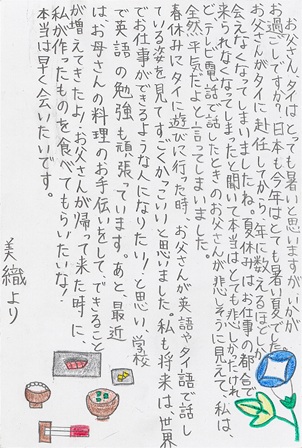 お父さん、タイはとっても暑いと思いますが、いかが
お過ごしですか？日本も今年はとても暑い夏でした。
お父さんがタイに赴任してから、年に数えるほどしか
会えなくなってしまいましたね。夏休みはお仕事の都合で
来られなくなってしまったと聞いて本当はとても悲しかったけれ
ど、テレビ電話で話したときのお父さんが悲しそうに見えて、私は
全然平気だよ。と言ってしまいました。
春休みにタイに遊びに行った時、お父さんが英語やタイ語で話し
ている姿を見てすごくかっこいいと思いました。私も将来は、世界
でお仕事ができるような人になりたい！と思い、学校
で英語の勉強も頑張っています。あと、最近
は、お母さんの料理のお手伝いをして、できること
が増えてきたよ！お父さんが帰って来た時に、
私が作ったものを食べてもらいたいな！
本当は早く会いたいです。
美織より